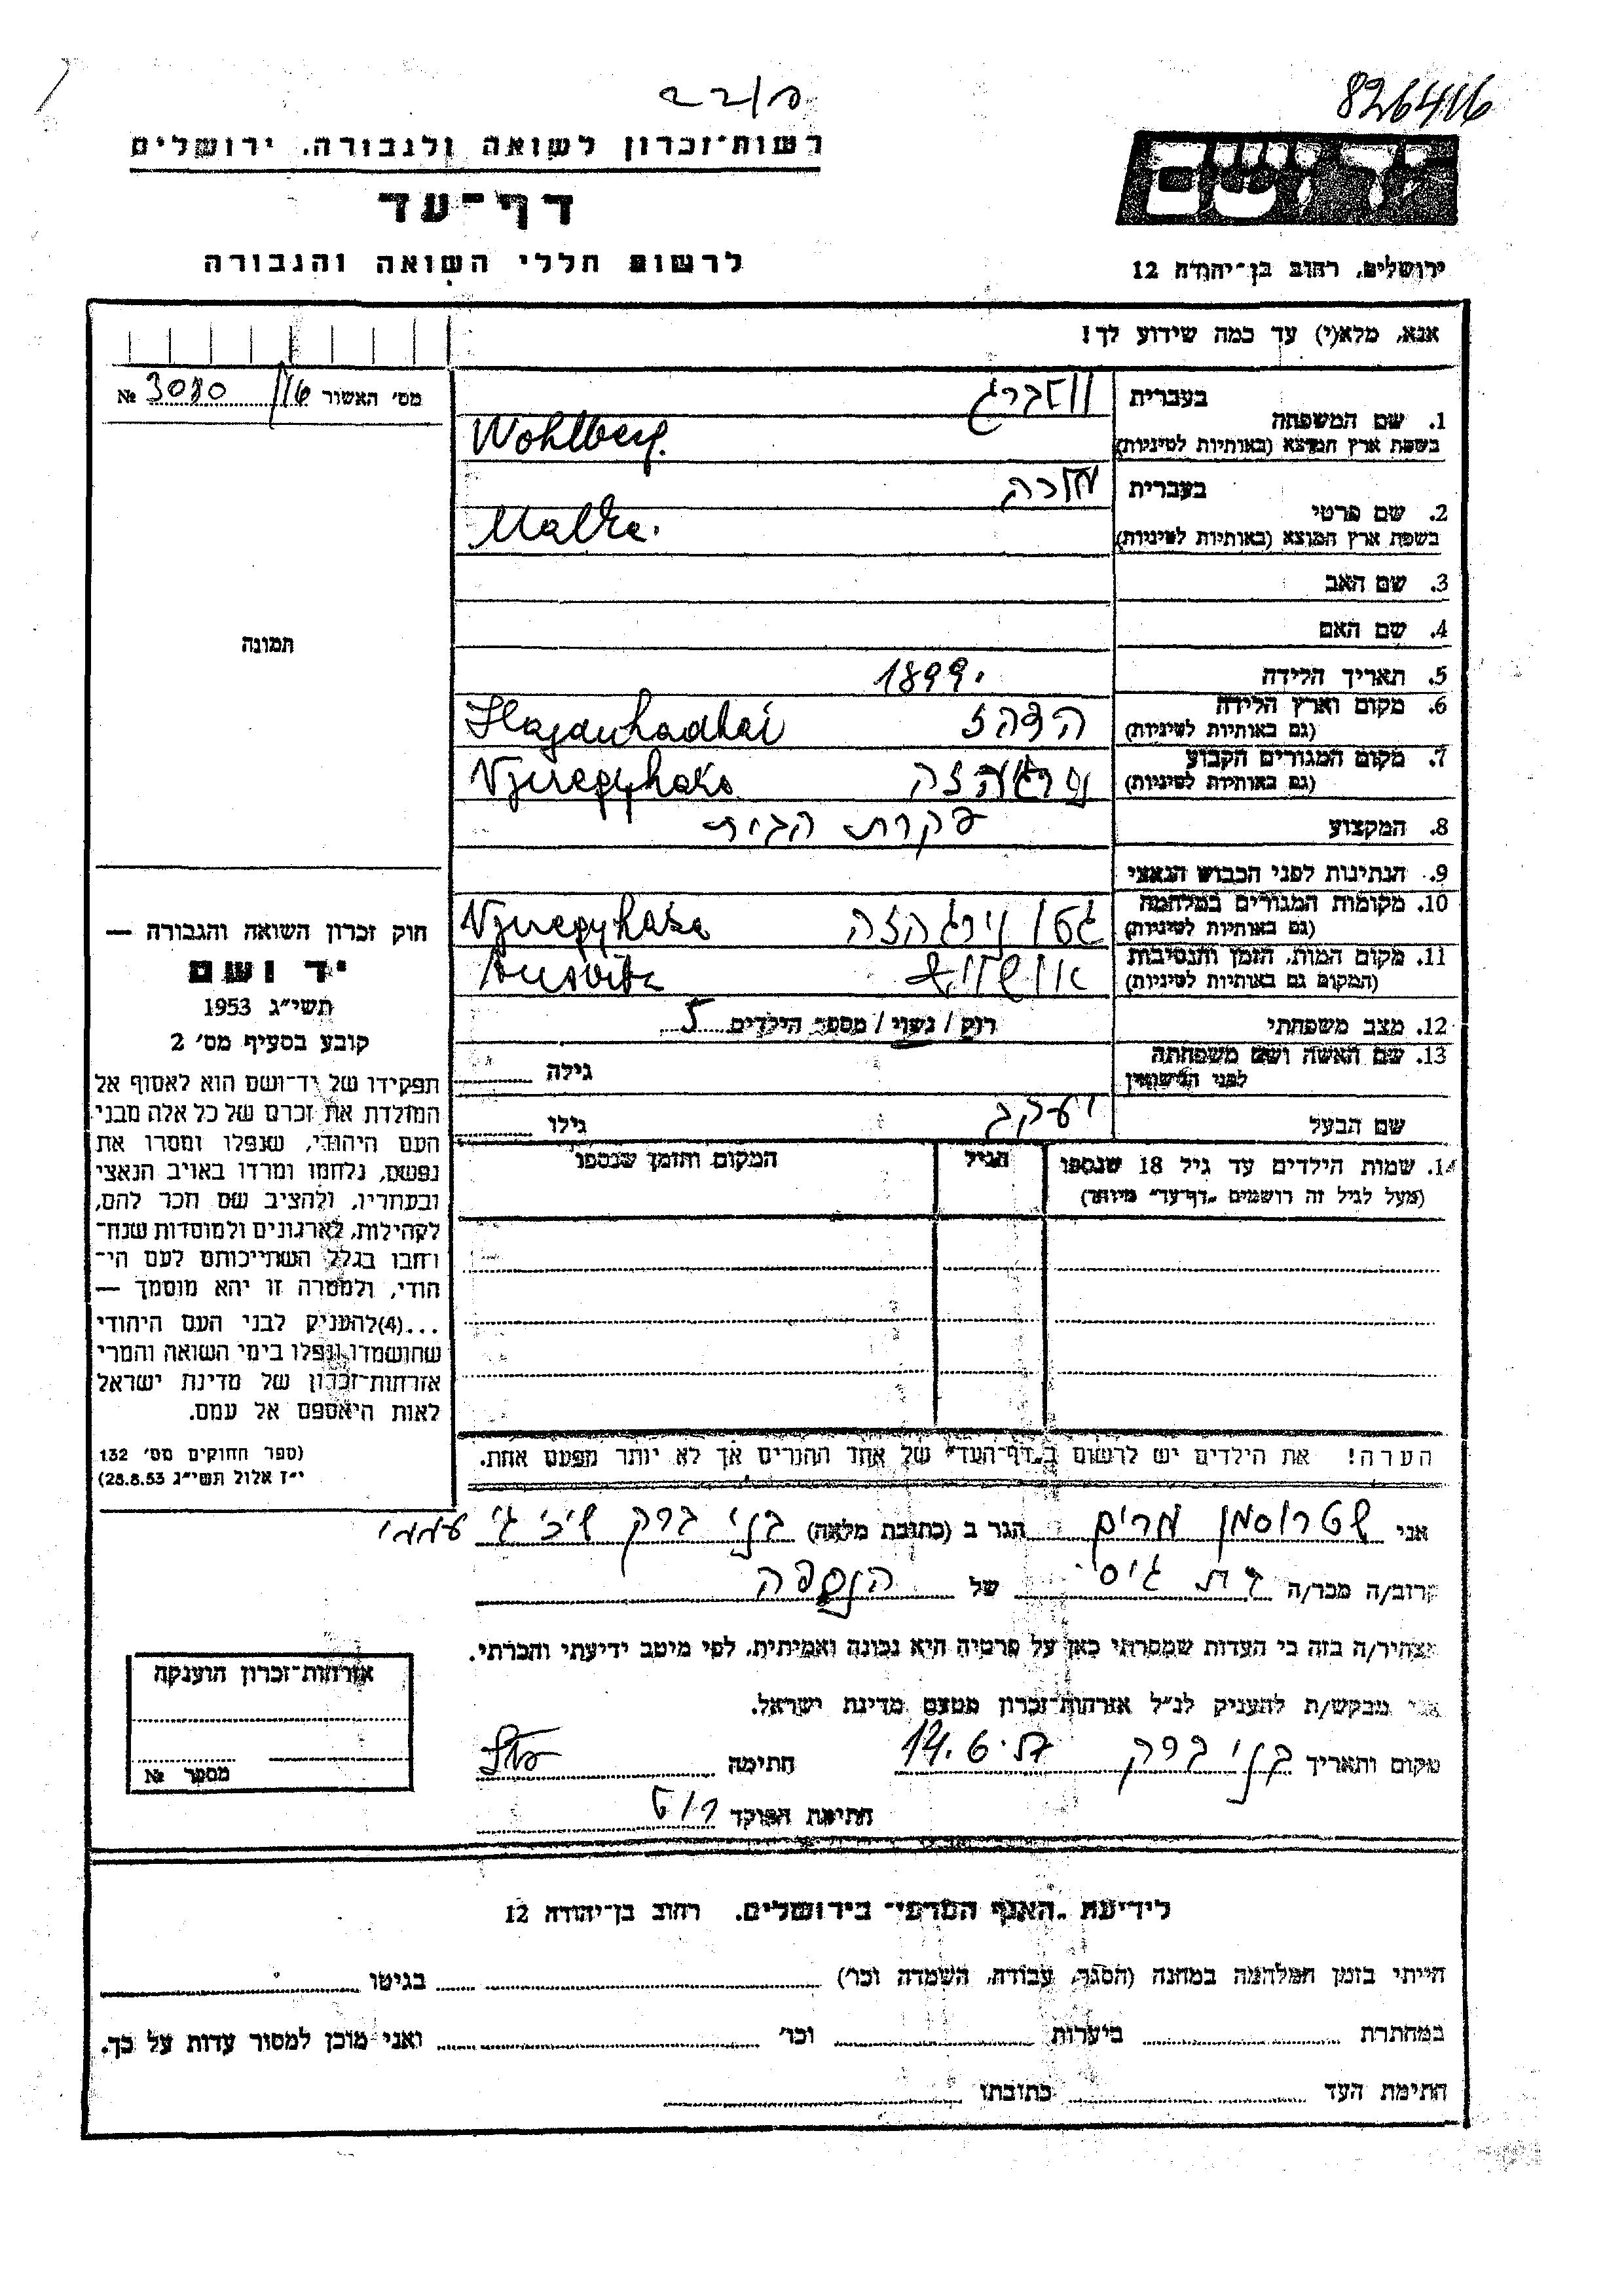 826416
רשות־זכרון לשואה ולגבורה, ירושלים
דף־עד
לרשום חללי השואה והגבורה
יד ושם
ירושלים, רחוב בן־יהודה 12
אנא, מלא(י) עד כמה שידוע לך!
מס' האשור 3080 №
תמונה
1. שם המשפחה
בעברית וולברג
בשפת ארץ המוצא (באותיות לטיניות) Wohlberg.
2. שם פרטי
בעברית מלכה
בשפת ארץ המוצא (באותיות לטיניות) Malka.
3. שם האב
4. שם האם
5. תאריך הלידה 1899.
6. מקום וארץ הלידה
(גם באותיות לטיניות) Hajduhadhai
7. מקום המגורים הקבוע
(גם באותיות לטיניות) Njiregyhaza
8. המקצוע עקרת הבית
9. הנתינות לפני הכבוש הנאצי
10. מקומות המגורים במלחמה גטו נירגהזה
(גם באותיות לטיניות) Njiregyhaza
11. מקום המות, הזמן והנסיבות אושוויץ
(המקום גם באותיות לטיניות) Ausvitz
12. מצב משפחתי רוק / נשוי / מספר הילדים 5
13. שם האשה ושם משפחתה
לפני הנישואין
גילה
שם הבעל יעקב גילו
14. שמות הילדים עד גיל 18 שנספו הגיל המקום והזמן שנספו
(מעל לגיל זה רושמים „דף־עד" מיוחד)
הערה! את הילדים יש לרשום ב„דף־העד" של אחד ההורים אך לא יותר מפעם אחת.
חוק זכרון השואה והגבורה —
יד ושם
תשי"ג 1953
קובע בסעיף מס' 2
תפקידו של יד־ושם הוא לאסוף אל
המולדת את זכרם של כל אלה מבני
העם היהודי, שנפלו ומסרו את
נפשם, נלחמו ומרדו באויב הנאצי
ובעוזריו, ולהציב שם וזכר להם,
לקהילות, לארגונים ולמוסדות שנח־
רבו בגלל השתייכותם לעם הי־
הודי, ולמטרה זו יהא מוסמך —
...(4)להעניק לבני העם היהודי
שהושמדו ונפלו בימי השואה והמרי
אזרחות־זכרון של מדינת ישראל
לאות היאספם אל עמם.
(ספר החוקים מס' 132
י"ז אלול תשי"ג 28.8.53)
אני שטרוסמן מרים הגר ב (כתובת מלאה) בני ברק שיכ' ג' עממי
קרוב/ה מכר/ה בת גיס' של הנספה
מצהיר/ה בזה כי העדות שמסרתי כאן על פרטיה היא נכונה ואמיתית, לפי מיטב ידיעתי והכרתי.
אני מבקש/ת להעניק לנ"ל אזרחות־זכרון מטעם מדינת ישראל.
מקום ותאריך בני ברק 14.6.57 חתימה
חתימת הפוקד
אזרחות־זכרון הוענקה
מספר №
לידיעת „האגף המדעי" בירושלים, רחוב בן־יהודה 12
הייתי בזמן המלחמה במחנה (הסגר, עבודה, השמדה וכו') בגיטו
במחתרת ביערות וכו' ואני מוכן למסור עדות על כך.
חתימת העד כתובתו